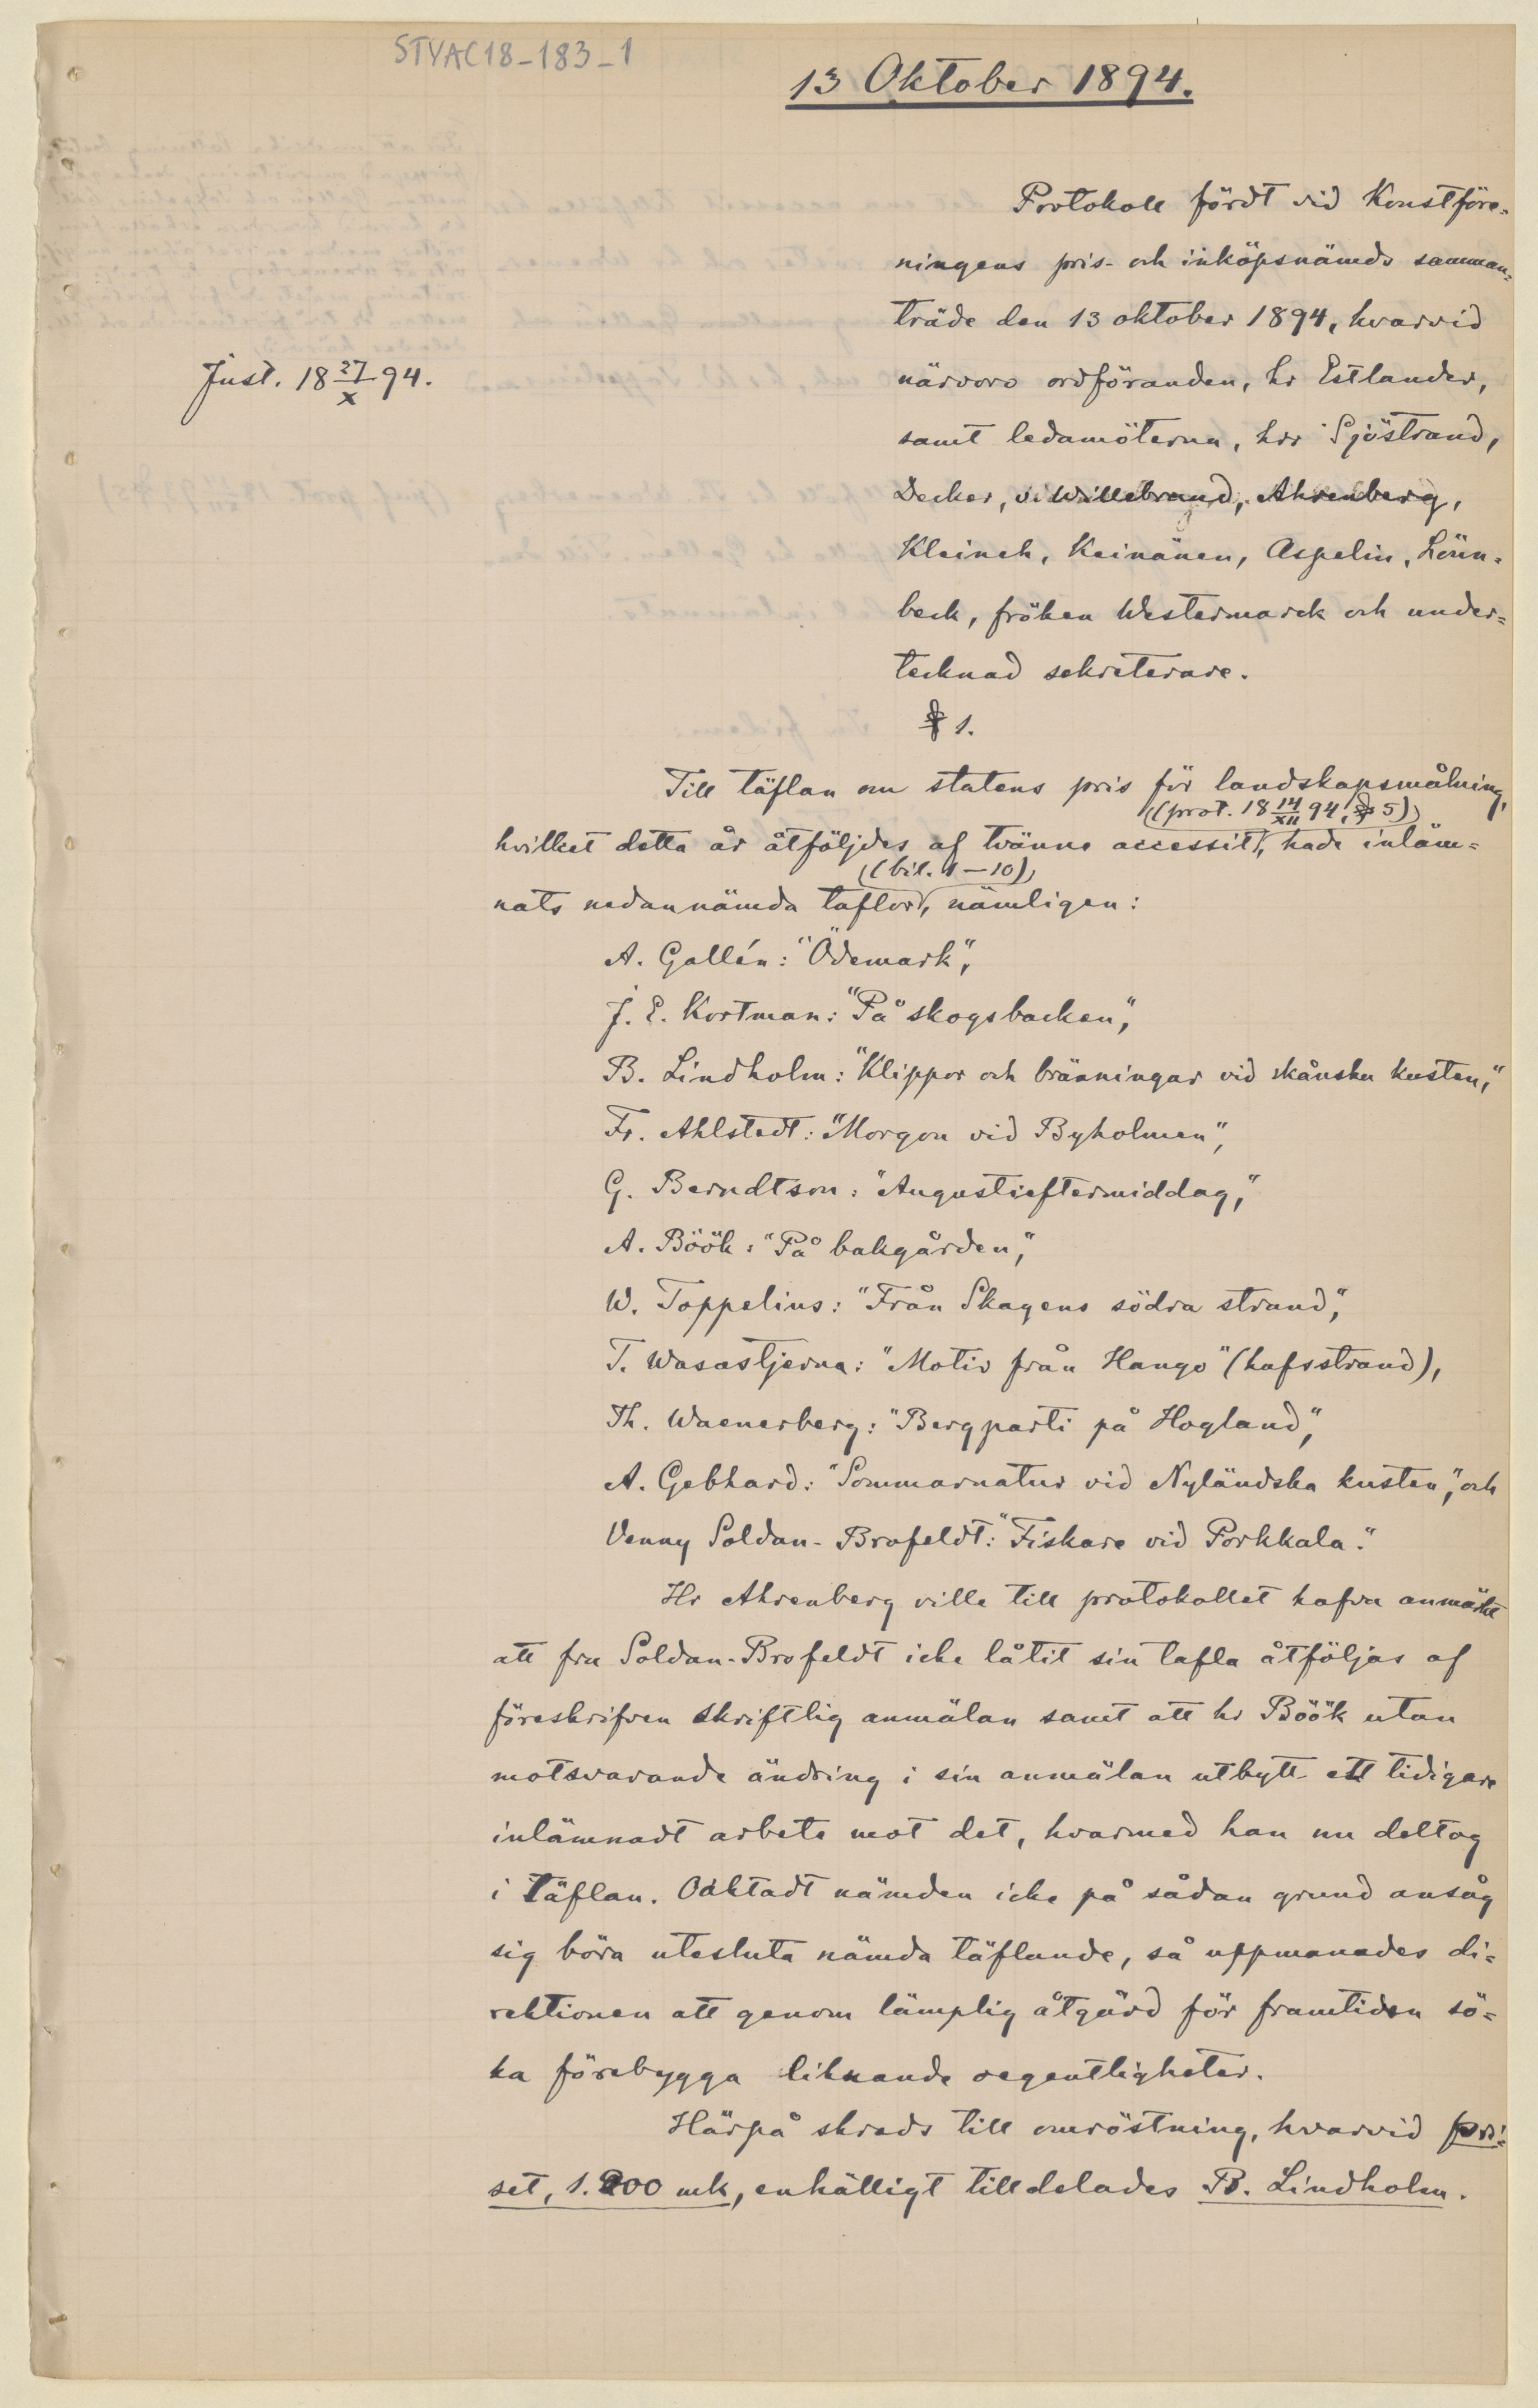 STYAC18-183-1
13 Oktober 1894.
Protokoll fördt vid Konstföre=
ningens pris- och inköpsnämds samman=
träde den 13 oktober 1894, hvarvid
Just. 18 27/X 94.
närvoro ordföranden, hr Estlander,
samt ledamöterna, hrr Sjöstrand,
Decker, v. Willebrand, Ahrenberg,
Kleineh, Keinänen, Aspelin, Lönn=
beck, fröken Westermarck och under=
tecknad sekreterare.
§ 1.
Till täflan om statens pris för landskapsmålning,
(prot. 18 14/XII 94, § 5)
hvilket detta år åtföljdes af tvänne accessit, hade inläm=
(bil. 1—10)
nats nedannämda taflor, nämligen:
A. Gallén: "Ödemark",
J. E. Kortman: "På skogsbacken",
B. Lindholm: "Klippor och bränningar vid skånska kusten,"
Fr. Ahlstedt: "Morgon vid Byholmen",
G. Berndtson: "Augustieftermiddag,"
A. Böök: "På bakgården",
W. Toppelius: "Från Skagens södra strand",
T. Wasastjerna: "Motiv från Hangö" (hafsstrand),
Th. Waenerberg: "Bergparti på Hogland",
A. Gebhard: "Sommarnatur vid Nyländska kusten", och
Venny Soldan-Brofeldt: "Fiskare vid Porkkala."
Hr Ahrenberg ville till protokollet hafva anmärkt
att fru Soldan-Brofeldt icke låtit sin tafla åtföljas af
föreskrifven skriftlig anmälan samt att hr Böök utan
motsvarande ändring i sin anmälan utbytt ett tidigare
inlämnadt arbete mot det, hvarmed han nu deltog
i täflan. Oaktadt nämden icke på sådan grund ansåg
sig böra utesluta nämda täflande, så uppmanades di=
rektionen att genom lämplig åtgärd för framtiden sö=
ka förebygga liknande oegentligheter.
Härpå skreds till omröstning, hvarvid pri=
set, 1.200 mk, enhälligt tilldelades B. Lindholm.